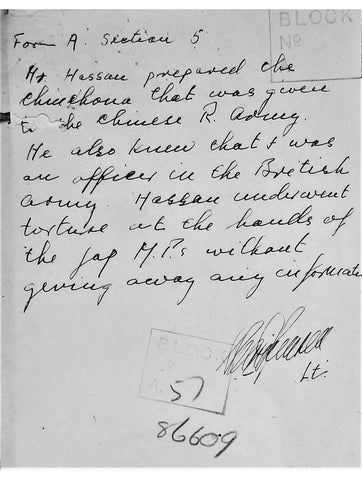 BLOCK
Nº
Form A. Section 5
Mr Hassan prepared the
Chinchona that was given
to the Chinese R. Army.
He also knew that I was
an officer in the British
Army. Hassan underwent
torture at the hands of
the Jap M.P.s without
giving away any informati
Lt.
BLOCK
Nº
A. 57
86609